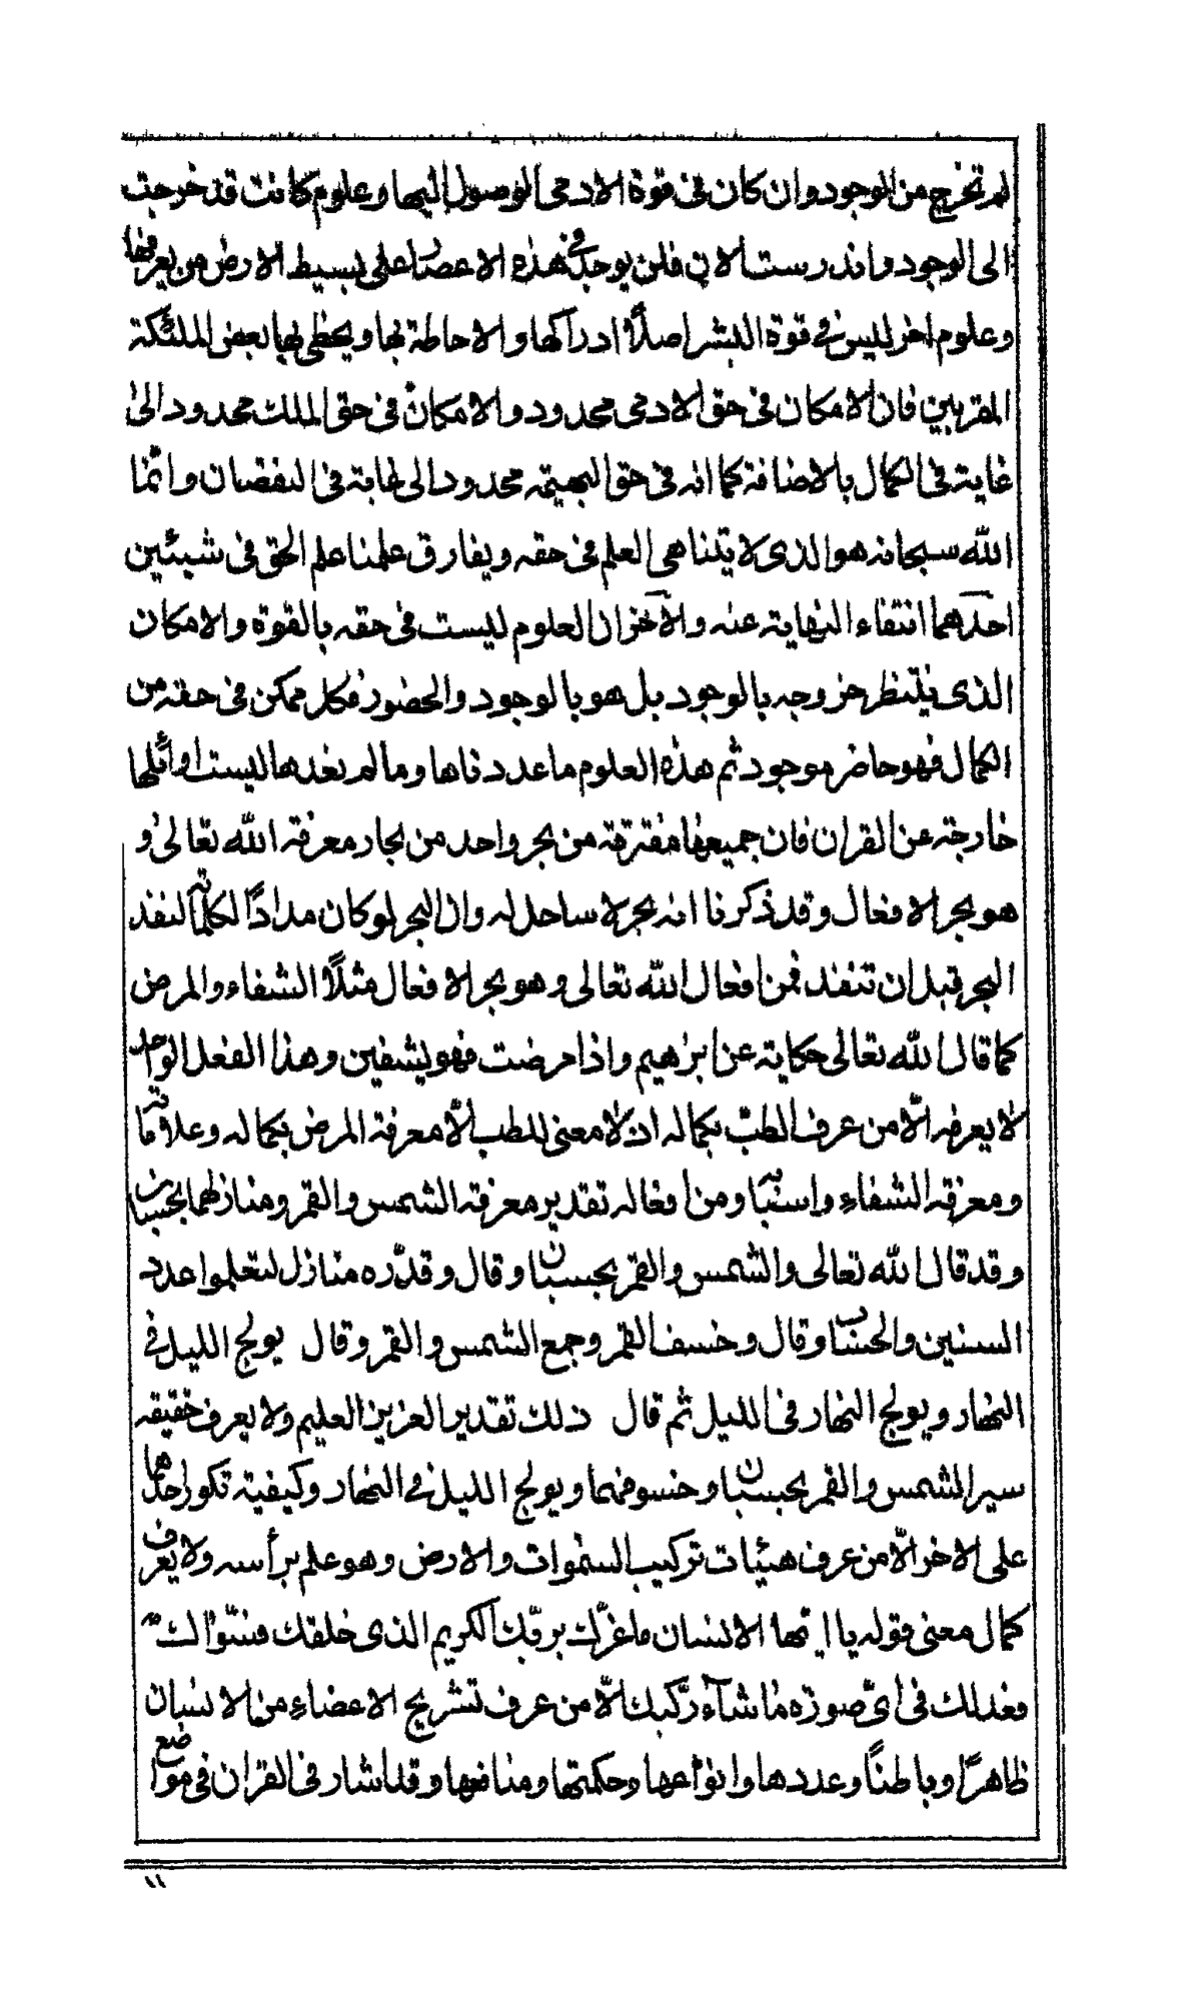 لم تخرج من الوجود وان كان فى قوة الادمى الوصول اليها وعلوم كانت قد خرجت
الى الوجود واندرست الان فلن يوجد فى هذه الاعصار على بسيط الارض من يعرفها
وعلوم اخر ليس فى قوة البشر اصلاً ادراكها والاحاطة بها ويحظى بها بعض الملئكة
المقربين فان الامكان فى حق الادمى محدود والامكان فى حق الملك محدود الى
غاية فى الكمال بالاضافة كما انه فى حق البهيمة محدود الى غاية فى النقصان وانما
الله سبحانه هو الذى لا يتناهى العلم فى حقه ويفارق علمنا علم الحق فى شيئين
احدهما انتفاء النهاية عنه والآخر ان العلوم ليست فى حقه بالقوة والامكان
الذى ينتظر خروجه بالوجود بل هو بالوجود والحضور فكل ممكن فى حقه من
الكمال فهو حاضر موجود ثم هذه العلوم ما عددناها وما لم نعدها ليست اوائلها
خارجة عن القران فان جميعها مفترقة من بحر واحد من بحار معرفة الله تعالى و
هو بحر الافعال وقد ذكرنا انه بحر لا ساحل له وان البحر لو كان مداداً لكلماته لنفد
البحر قبل ان تنفد فمن افعال الله تعالى وهو بحر الافعال مثلاً الشفاء والمرض
كما قال الله تعالى حكاية عن ابرهيم واذا مرضت فهو يشفين وهذا الفعل الواحد
لا يعرفه الّا من عرف الطبّ بكماله اذ لا معنى للطب الّا معرفة المرض بكماله وعلاماته
ومعرفة الشفاء واسبابه ومن افعاله تقدير معرفة الشمس والقمر ومنازلهما بحسبان
وقد قال الله تعالى والشمس والقمر بحسبان وقال وقدّره منازل لتعلموا عدد
السنين والحساب وقال وخسف القمر وجمع الشمس والقمر وقال يولج الليل فى
النهار ويولج النهار فى الليل ثم قال ذلك تقدير العزيز العليم ولا يعرف حقيقة
سير الشمس والقمر بحسبان وخسوفهما ويولج الليل فى النهار وكيفية تكور احدهما
على الاخر الّا من عرف هيئات تركيب السموات والارض وهو علم برأسه ولا يعرف
كمال معنى قوله يا ايها الانسان ما غرّك بربّك الكريم الذى خلقك فسوّاك
فعدلك فى اىّ صورة ما شآء ركّبك الّا من عرف تشريح الاعضاء من الانسان
ظاهرًا وباطنًا وعددها وانواعها وحكمتها ومنافعها وقد اشار فى القران فى مواضع
١١